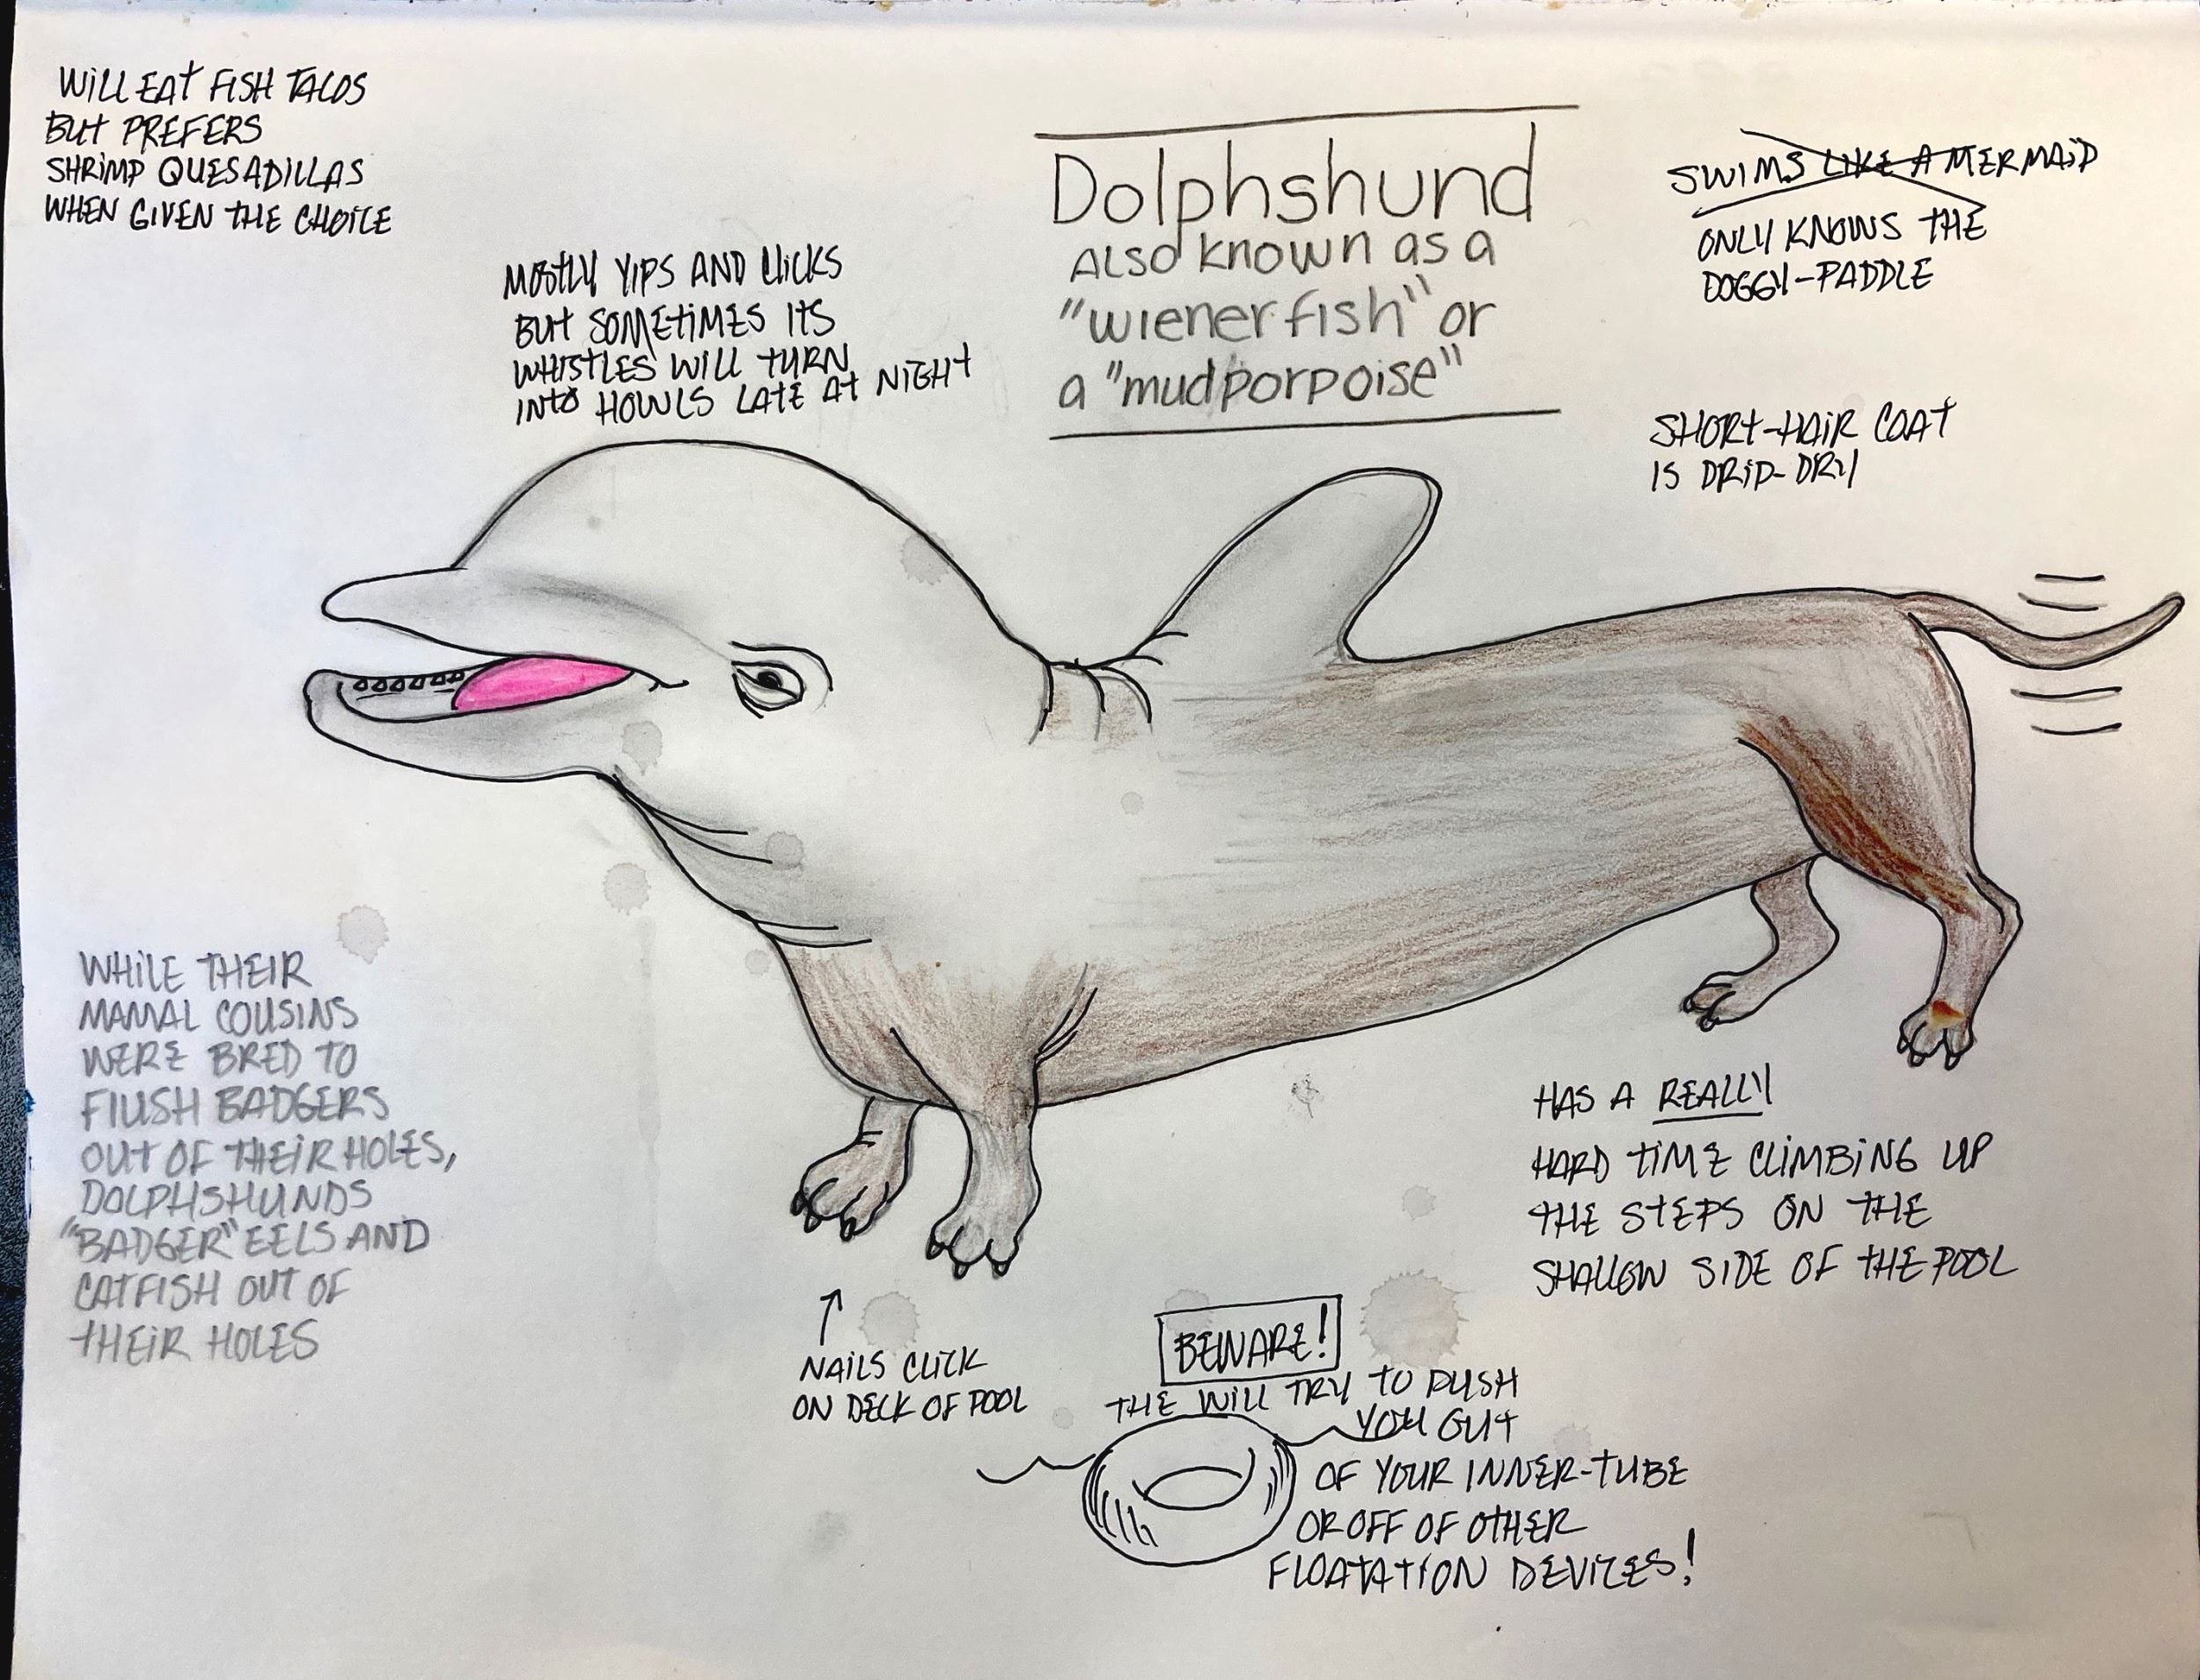 WILL EAT FISH TACOS
BUT PREFERS
SHRIMP QUESADILLAS
WHEN GIVEN THE CHOICE
MOSTLY YIPS AND CLICKS
BUT SOMETIMES ITS
WHISTLES WILL TURN
INTO HOWLS LATE AT NIGHT
Dolphshund
ALSO known as a
"wiener fish" or
a "mud porpoise"
SWIMS LIKE A MERMAID
ONLY KNOWS THE
DOGGY-PADDLE
SHORT-HAIR COAT
IS DRIP-DRY
WHILE THEIR
MAMAL COUSINS
WERE BRED TO
FLUSH BADGERS
OUT OF THEIR HOLES,
DOLPHSHUNDS
"BADGER" EELS AND
CATFISH OUT OF
THEIR HOLES
NAILS CLICK
ON DECK OF POOL
BEWARE!
THE WILL TRY TO PUSH
YOU OUT
OF YOUR INNER-TUBE
OR OFF OF OTHER
FLOATATION DEVICES!
HAS A REALLY
HARD TIME CLIMBING UP
THE STEPS ON THE
SHALLOW SIDE OF THE POOL